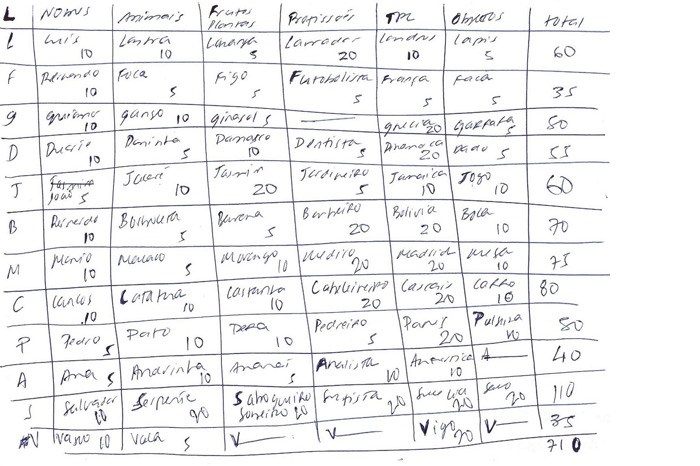 L Nomes Animais Frutas Plantas Profissões TPL Objectos total
L Luís 10 Lontra 10 Laranja 5 Lavrador 20 Londres 10 Lapis 5 60
F 10 Foca 5 Figo 5 Futebolista 5 França 5 Faca 5 35
g 10 ganso 10 girasol 5 — grecia 20 garrafa 5 50
D Duarte 10 Doninha 5 Damasco 10 Dentista 5 Dinamarca 20 Dado 5 55
J João 5 Jacaré 10 Jasmim 20 Jardineiro 5 Jamaica 10 Jogo 10 60
B Bernardo 10 5 Banana 5 Barbeiro 20 Bolivia 20 Bola 10 70
M Mario 10 Macaco 5 Morango 10 Medico 20 Madrid 20 Mesa 10 75
C Carlos 10 Catatua 10 Castanha 10 Cabeleireiro 20 Cascais 20 Carro 10 80
P Pedro 5 Pato 10 Pera 10 Pedreiro 5 Paris 20 Pulseira 10
A Ana 5 Andorinha 10 Ananás 5 Analista 10 10 A — 40
S Salvador 10 Serpente 20 Saboqueiro Sobreiro 20 20 Suecia 20 Saco 20 110
V Vasco 10 Vaca 5 V — V — Vigo 20 V — 35
710